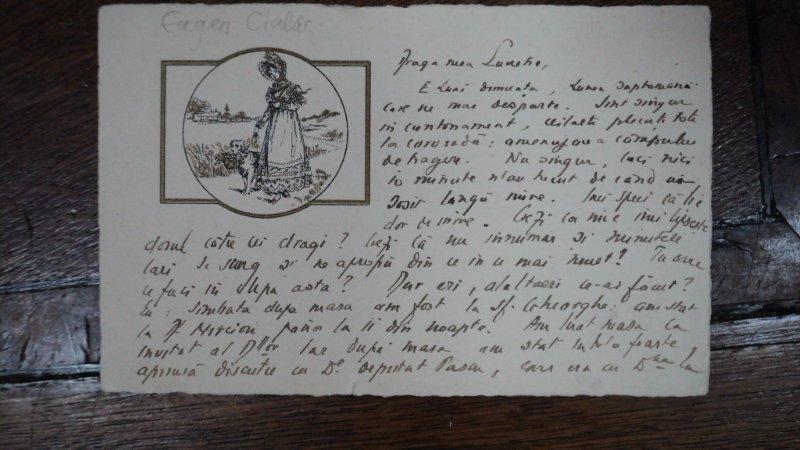 Eugen Cialâc
Draga mea Lunetie,
E Luni dimineata, Lunea saptamanii
care ne mai desparte. Sint singur
in cantonament, ceilalti plecati toti
la corvoadă: amenajarea câmpului
de tragere. Nu singur, caci nici
10 minute n'au trecut de cand
sosit langă mine. Imi spui că ti-e
dor de mine. Crezi ca mie imi lipseste
dorul catre cei dragi? Crezi că nu innumar si minutele
cari se scurg si ne apropie din ce in ce mai incet? Tu oare
ce faci in clipa asta? Dar eri, alaltaeri ce-ai făcut?
Eu: Simbata dupa masa am fost la Sf. Gheorghe: am stat
la Mircion, până la 11 din noapte. Am luat masa ca
invitat al Dlor Iar după masa am stat intr'o foarte
aprinsă discutie cu Dl Deputat Pascu, care era cu Dna la